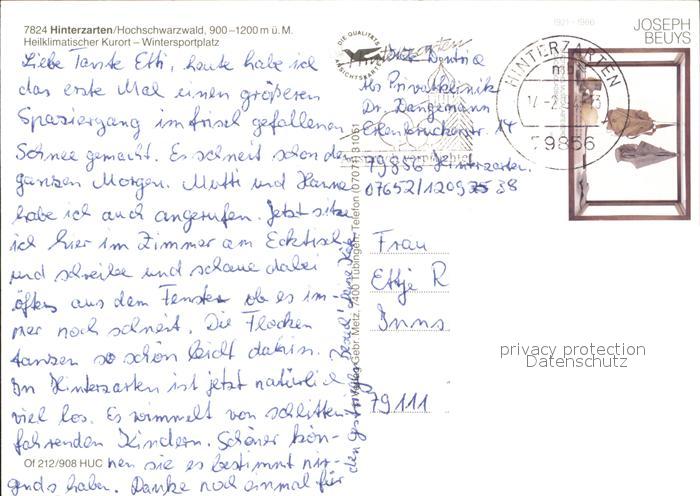 7824 Hinterzarten/Hochschwarzwald, 900–1200 m ü. M.
Heilklimatischer Kurort – Wintersportplatz
Liebe Tante Etti, heute habe ich
das erste Mal einen größeren
Spaziergang im frisch gefallenen
Schnee gemacht. Es schneit schon de
ganzen Morgen. Mutti und Hanne
habe ich auch angerufen. Jetzt sitze
ich hier im Zimmer am Ecktisch
und schreibe und schaue dabei
öfters aus dem Fenster ob es im-
mer noch schneit. Die Flocken
tanzen so schön leicht dahin.
In Hinterzarten ist jetzt natürlich
viel los. Es wimmelt von schlitten-
fahrenden Kindern. Schöner kön-
Of 212/908 HUC nen sie es bestimmt nir-
gends haben. Danke noch einmal für
DIE QUALITÄTS
ANSICHTSKARTE
Verlag Gebr. Metz, 7400 Tübingen, Telefon (07071) 31061
Privatklinik
Dr. Dangemann
Erlenbruckerstr. 14
79856 Hinterzarten.
07652/1209 38
Frau
Ettje R
79111
HINTERZARTEN
mb
79856
1921-1986
JOSEPH
BEUYS
privacy protection
Datenschutz